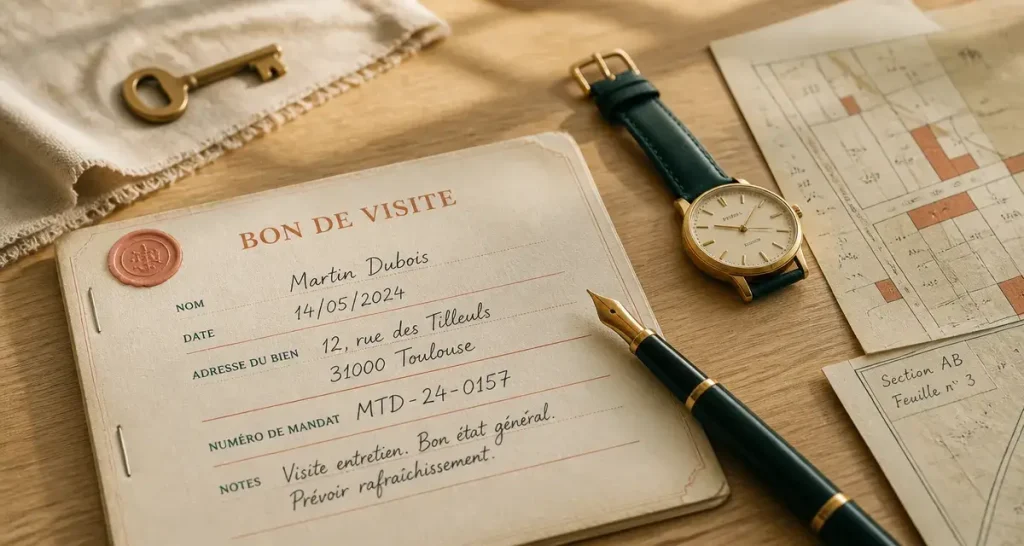 BON DE VISITE
NOM Martin Dubois
DATE 14/05/2024
ADRESSE DU BIEN 12, rue des Tilleuls
31000 Toulouse
NUMÉRO DE MANDAT MTD-24-0157
NOTES Visite entretien. Bon état général.
Prévoir rafraîchissement.
Section AB
Feuille n° 3